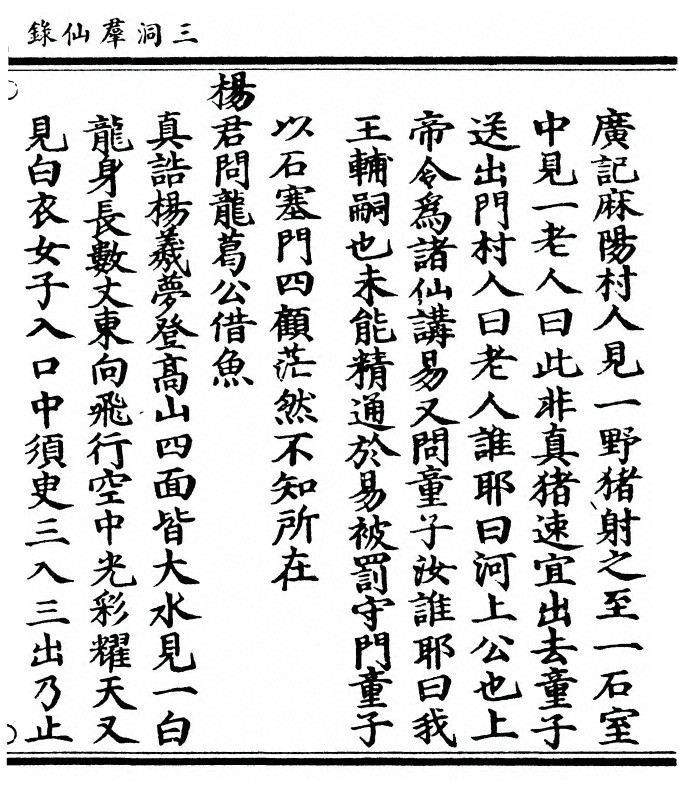 三洞羣仙錄
廣記麻陽村人見一野猪射之至一石室
中見一老人曰此非真猪速宜出去童子
送出門村人曰老人誰耶曰河上公也上
帝令爲諸仙講易又問童子汝誰耶曰我
王輔嗣也未能精通於易被罰守門童子
以石塞門四顧茫然不知所在
楊君問龍葛公借魚
真誥楊羲夢登高山四面皆大水見一白
龍身長數丈東向飛行空中光彩耀天又
見白衣女子入口中須臾三入三出乃止